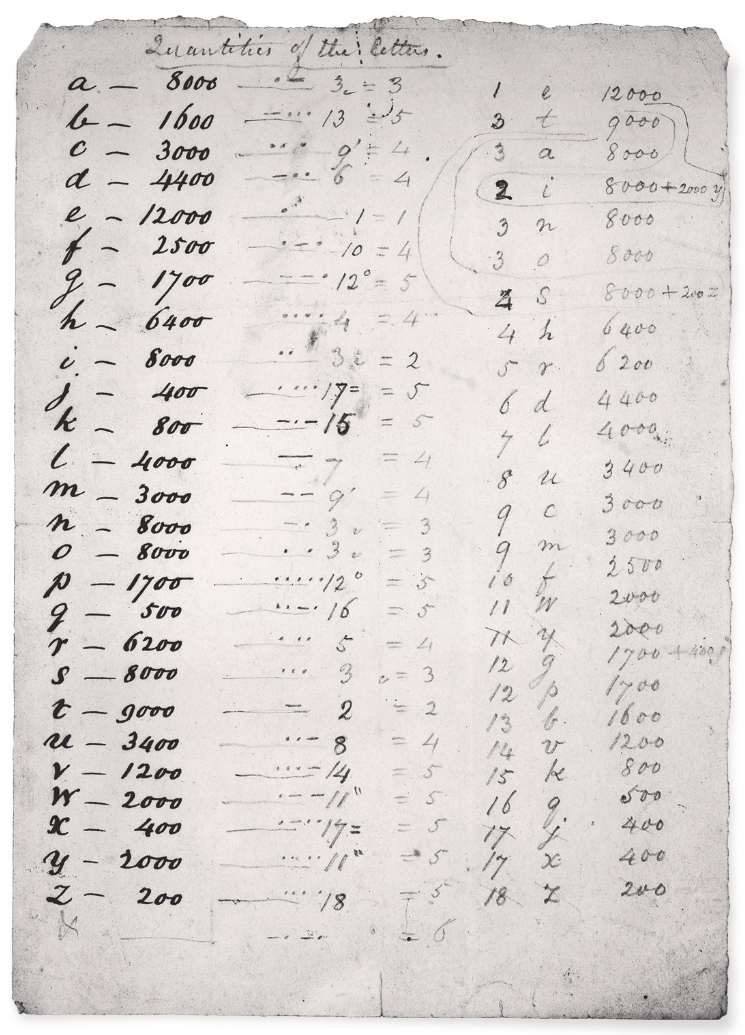 Quantities of the letters.
a — 8000 — ·– 3 = 3
b — 1600 — –··· 13 = 5
c — 3000 — ·· · 9' = 4
d — 4400 — –·· 6 = 4
e — 12000 — · 1 = 1
f — 2500 — 10 = 4
g — 1700 — 12° = 5
h — 6400 — ···· 4 = 4
i — 8000 ·· 3 = 2
j — 400 17= = 5
k — 800 –·– 15 = 5
l — 4000 — — 7 = 4
m — 3000 – – 9' = 4
n — 8000 –· 3 = 3
o — 8000 — · · 3 = 3
p — 1700 — ····· 12° = 5
q — 500 — ··–· 16 = 5
r — 6200 — · ·· 5 = 4
s — 8000 — ··· 3 = 3
t — 9000 — – 2 = 2
u — 3400 ··– 8 = 4
v — 1200 — ···– 14 = 5
w — 2000 — ·–– 11" = 5
x — 400 — ·–·· 17= 5
y — 2000 ·· ·· 11" = 5
z — 200 — ··· · 18 = 5
= 6
1 e 12000
3 t 9000
3 a 8000
2 i 8000 + 2000 y
3 n 8000
3 o 8000
4 s 8000 + 200 z
4 h 6400
5 r 6200
6 d 4400
7 l 4000
8 u 3400
9 c 3000
9 m 3000
10 f 2500
11 w 2000
11 y 2000
12 g 1700 + 400 j
12 p 1700
13 b 1600
14 v 1200
15 k 800
16 q 500
17 j 400
17 x 400
18 z 200